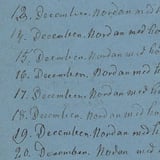 13. Decembeen. Nordan med
14. Decembeen. Nordan med ho
15. Decembeen. Nordan med
16. Decembeen. Nordan med ho
17. Decembeen. Nordan med ho
18. Decembeen. Nordan med
19. Decembeen. Nordan
20. Decembeen. Nordan